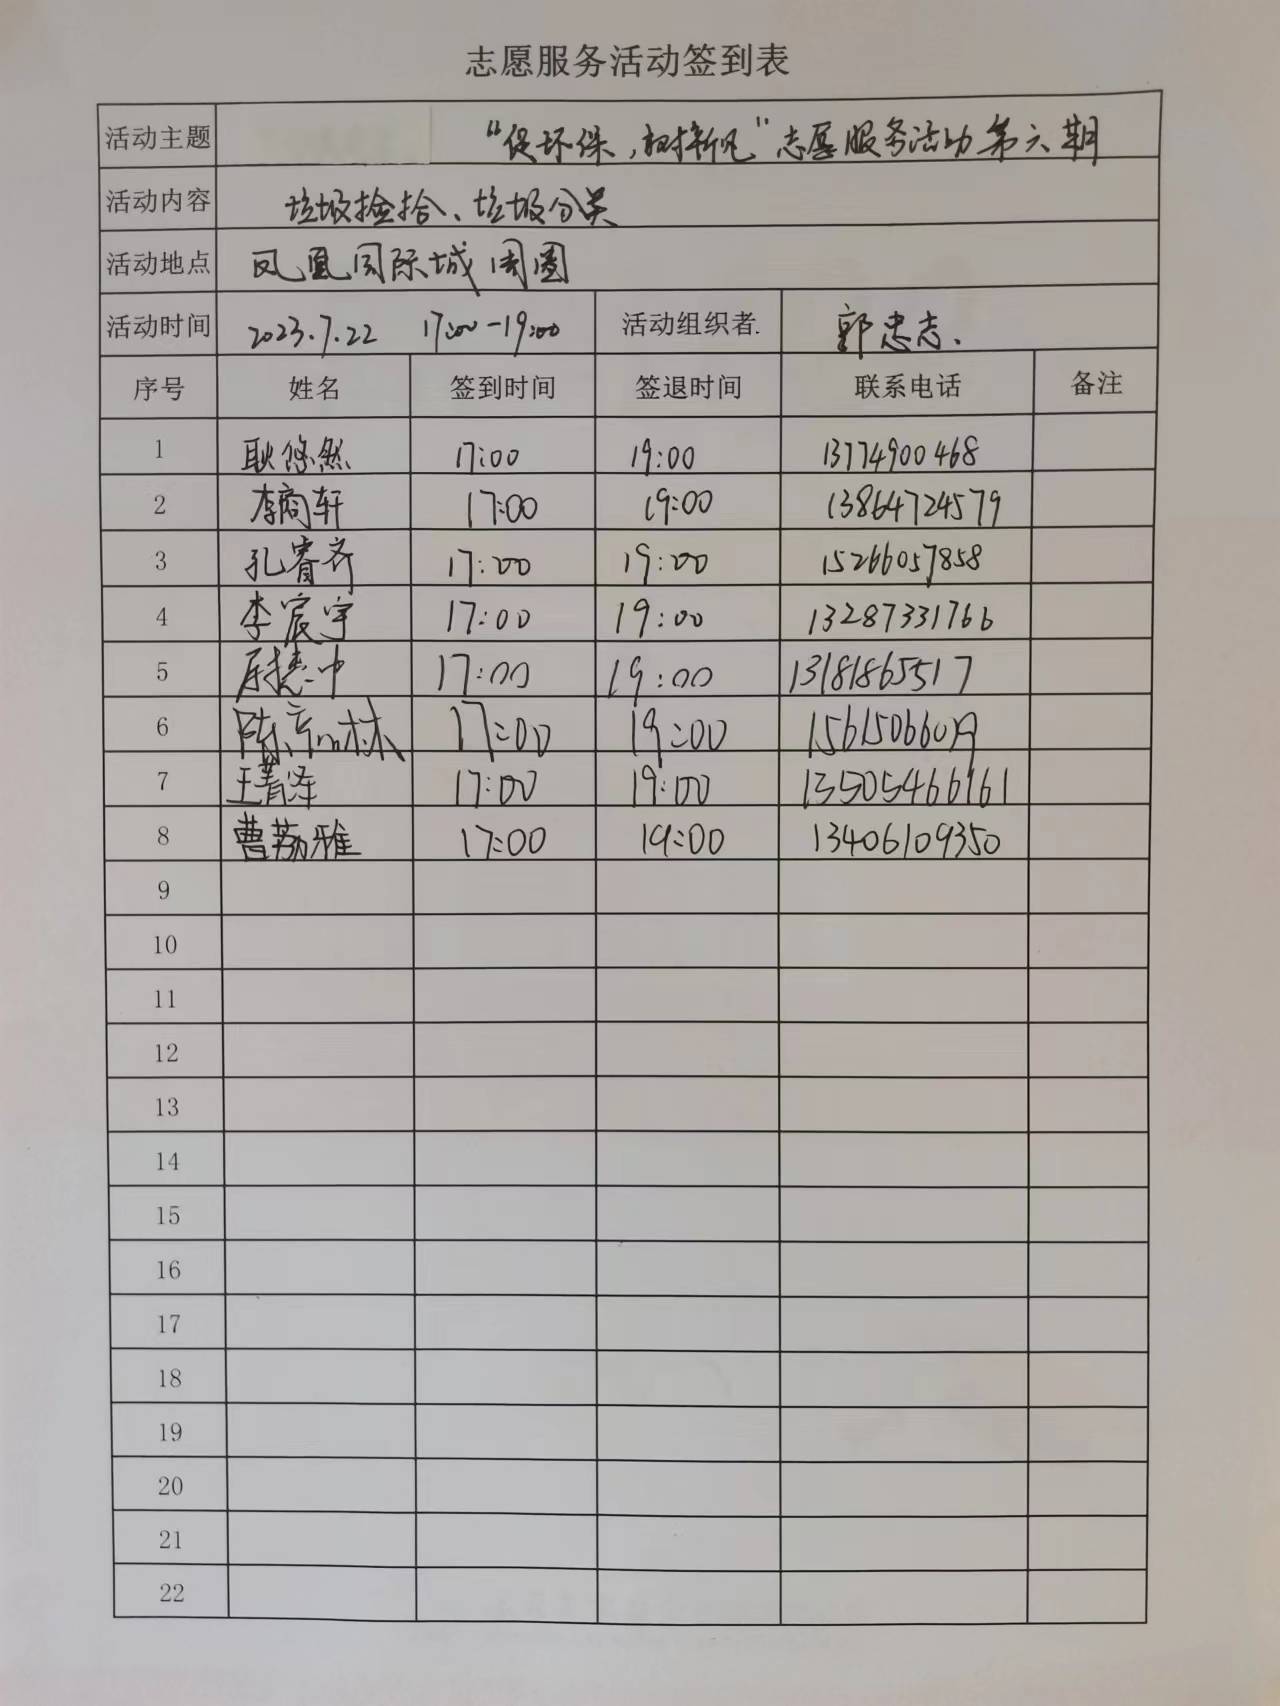 志愿服务活动签到表
活动主题 “促环保，树新风”志愿服务活动第六期
活动内容 垃圾捡拾、垃圾分类
活动地点 凤凰国际城周围
活动时间 2023.7.22 17:00-19:00 活动组织者. 郭忠志.
序号 姓名 签到时间 签退时间 联系电话 备注
1 耿悠然 17:00 19:00 13774900468
2 李商轩 17:00 19:00 13864724579
3 孔睿齐 17:00 19:00 15266057858
4 李宸宇 17:00 19:00 13287331766
5 17:00 19:00 13181865517
6 17:00 19:00
7 王菁泽 17:00 19:00 13505466161
8 曹荔雅 17:00 19:00 13406109350
9
10
11
12
13
14
15
16
17
18
19
20
21
22